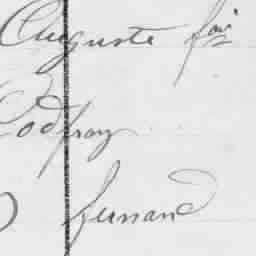 Auguste
Godfroy
fernand